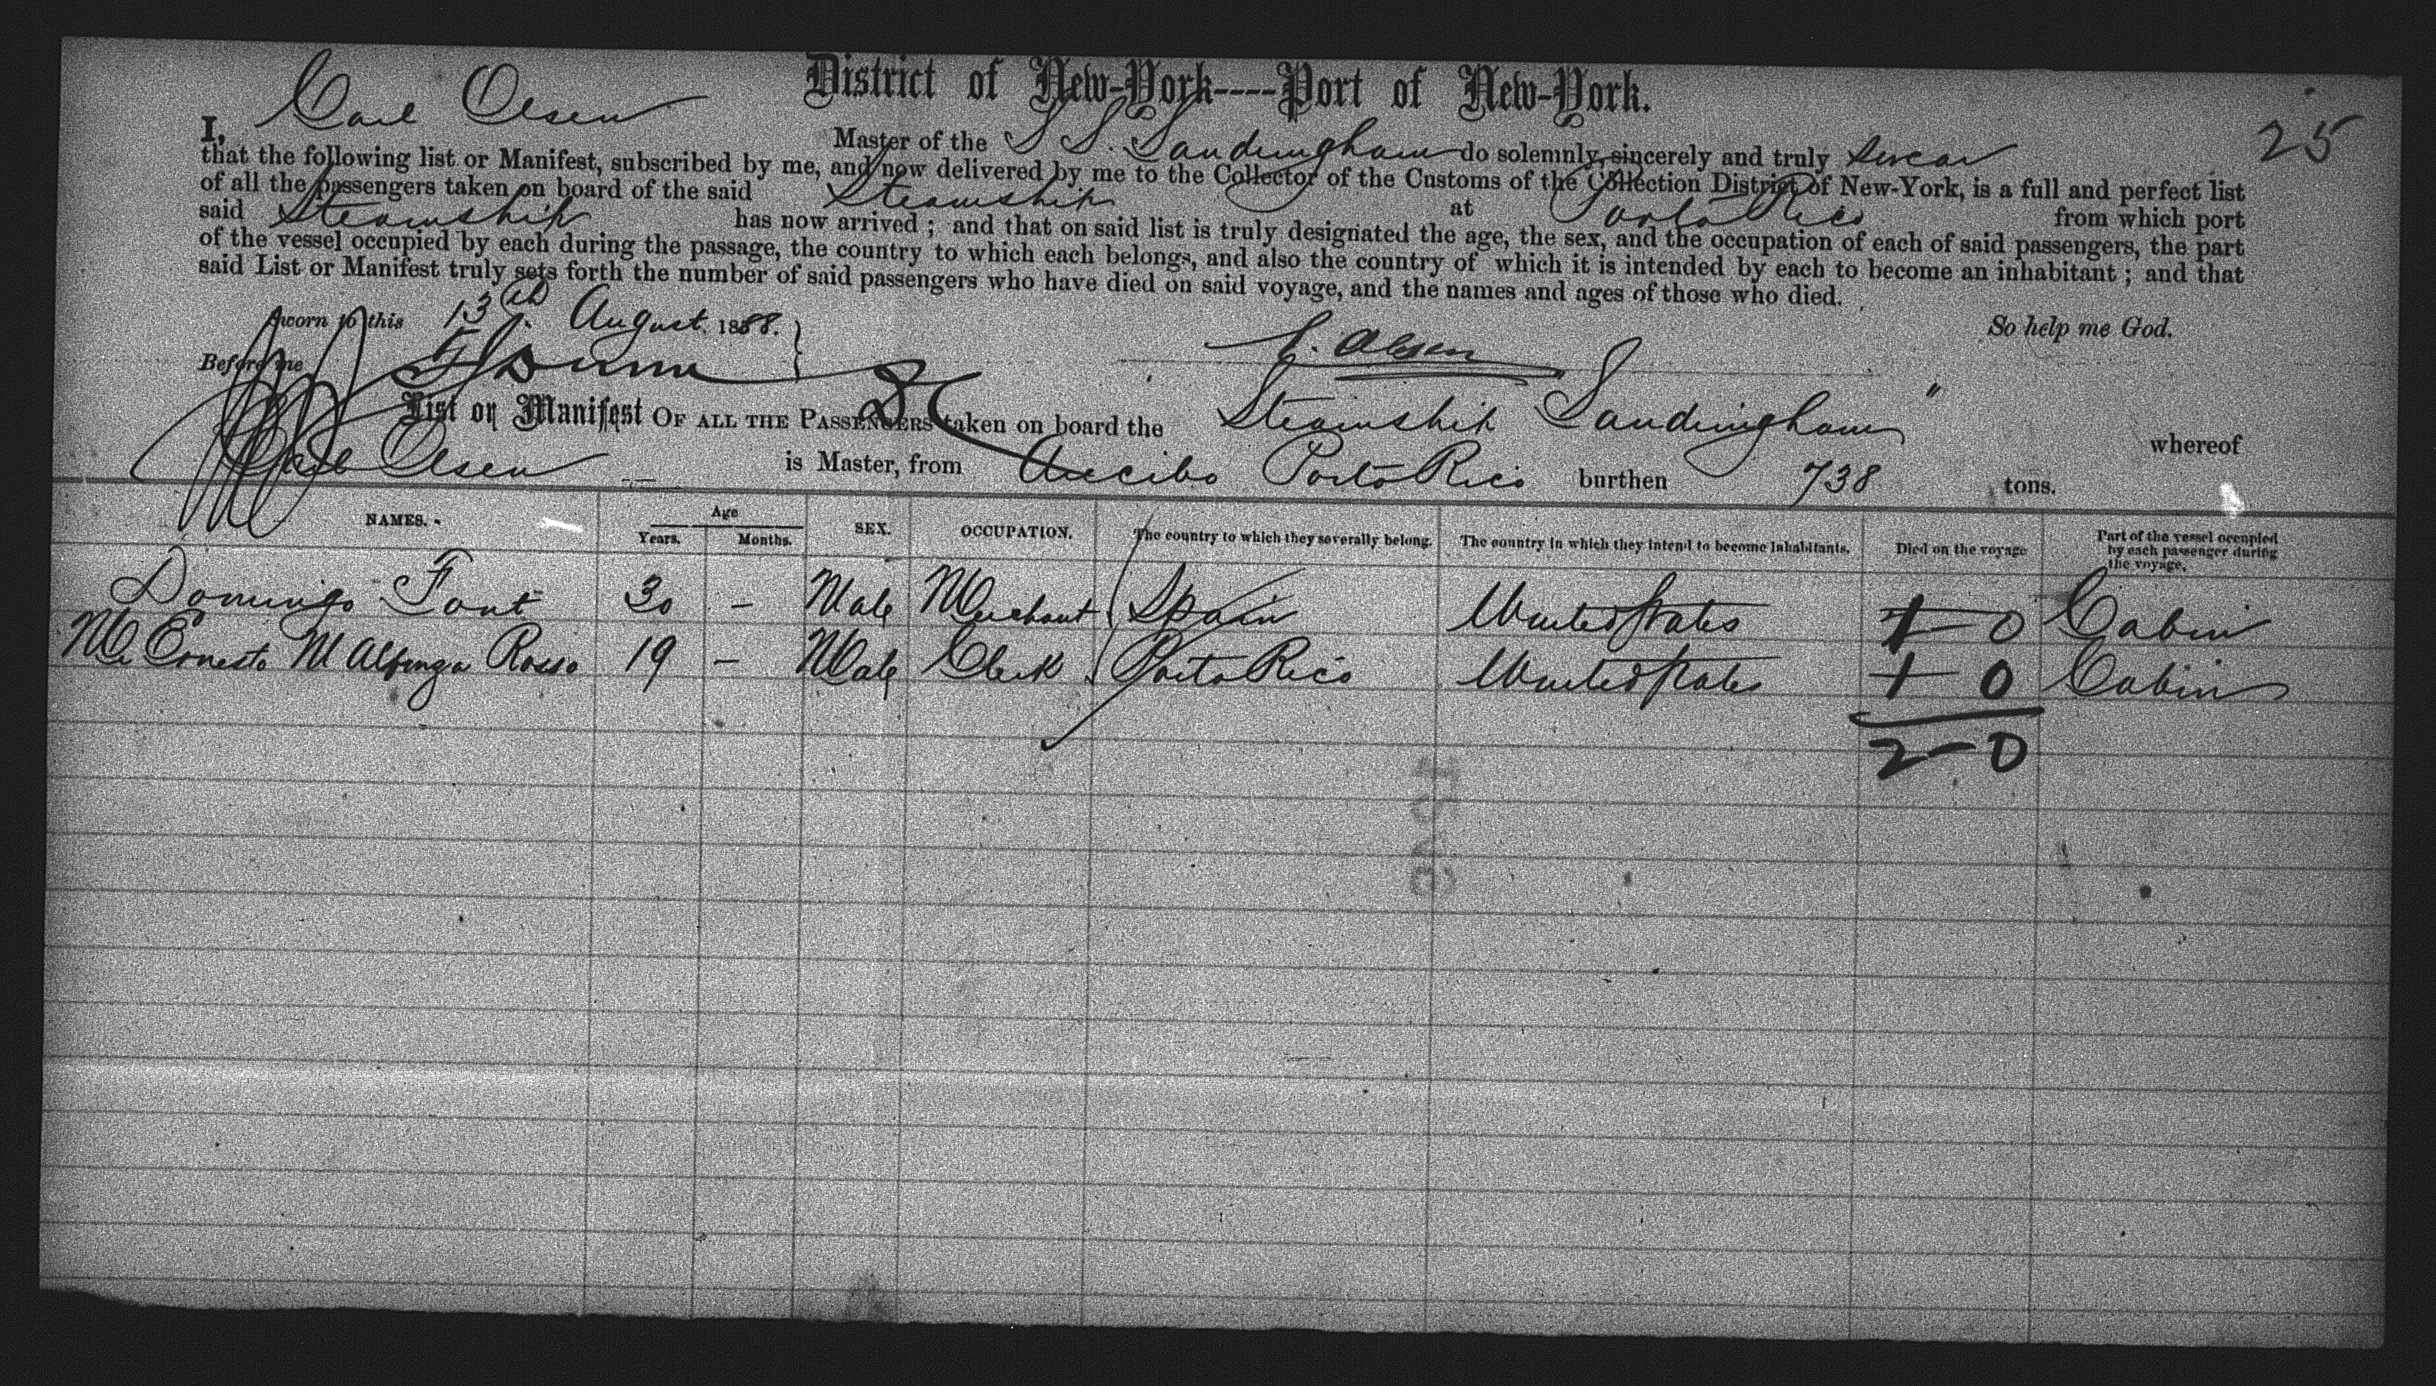 District of New-York----Port of New-York.
25
I, Carl Olsen Master of the S S. Sandringham do solemnly, sincerely and truly swear
that the following list or Manifest, subscribed by me, and now delivered by me to the Collector of the Customs of the Collection District of New-York, is a full and perfect list
of all the passengers taken on board of the said Steamship at Porto Rico from which port
said Steamship has now arrived ; and that on said list is truly designated the age, the sex, and the occupation of each of said passengers, the part
of the vessel occupied by each during the passage, the country to which each belongs, and also the country of which it is intended by each to become an inhabitant ; and that
said List or Manifest truly sets forth the number of said passengers who have died on said voyage, and the names and ages of those who died.
Sworn to this 13th August. 1888. So help me God.
Before me C. Olsen
List or Manifest OF ALL THE PASSENGERS taken on board the Steamship Sandringham" whereof
Carl Olsen is Master, from Arecibo Porto Rico burthen 738 tons.
NAMES. Age Years. Months. SEX. OCCUPATION. The country to which they severally belong. The country in which they intend to become inhabitants. Died on the voyage Part of the vessel occupied by each passenger during the voyage.
Domingo Font 30 – Male Merchant Spain United States 1 – 0 Cabin
Mr Ernesto M Rosso 19 – Male Clerk Porto Rico United States 1 0 Cabin
2 – 0